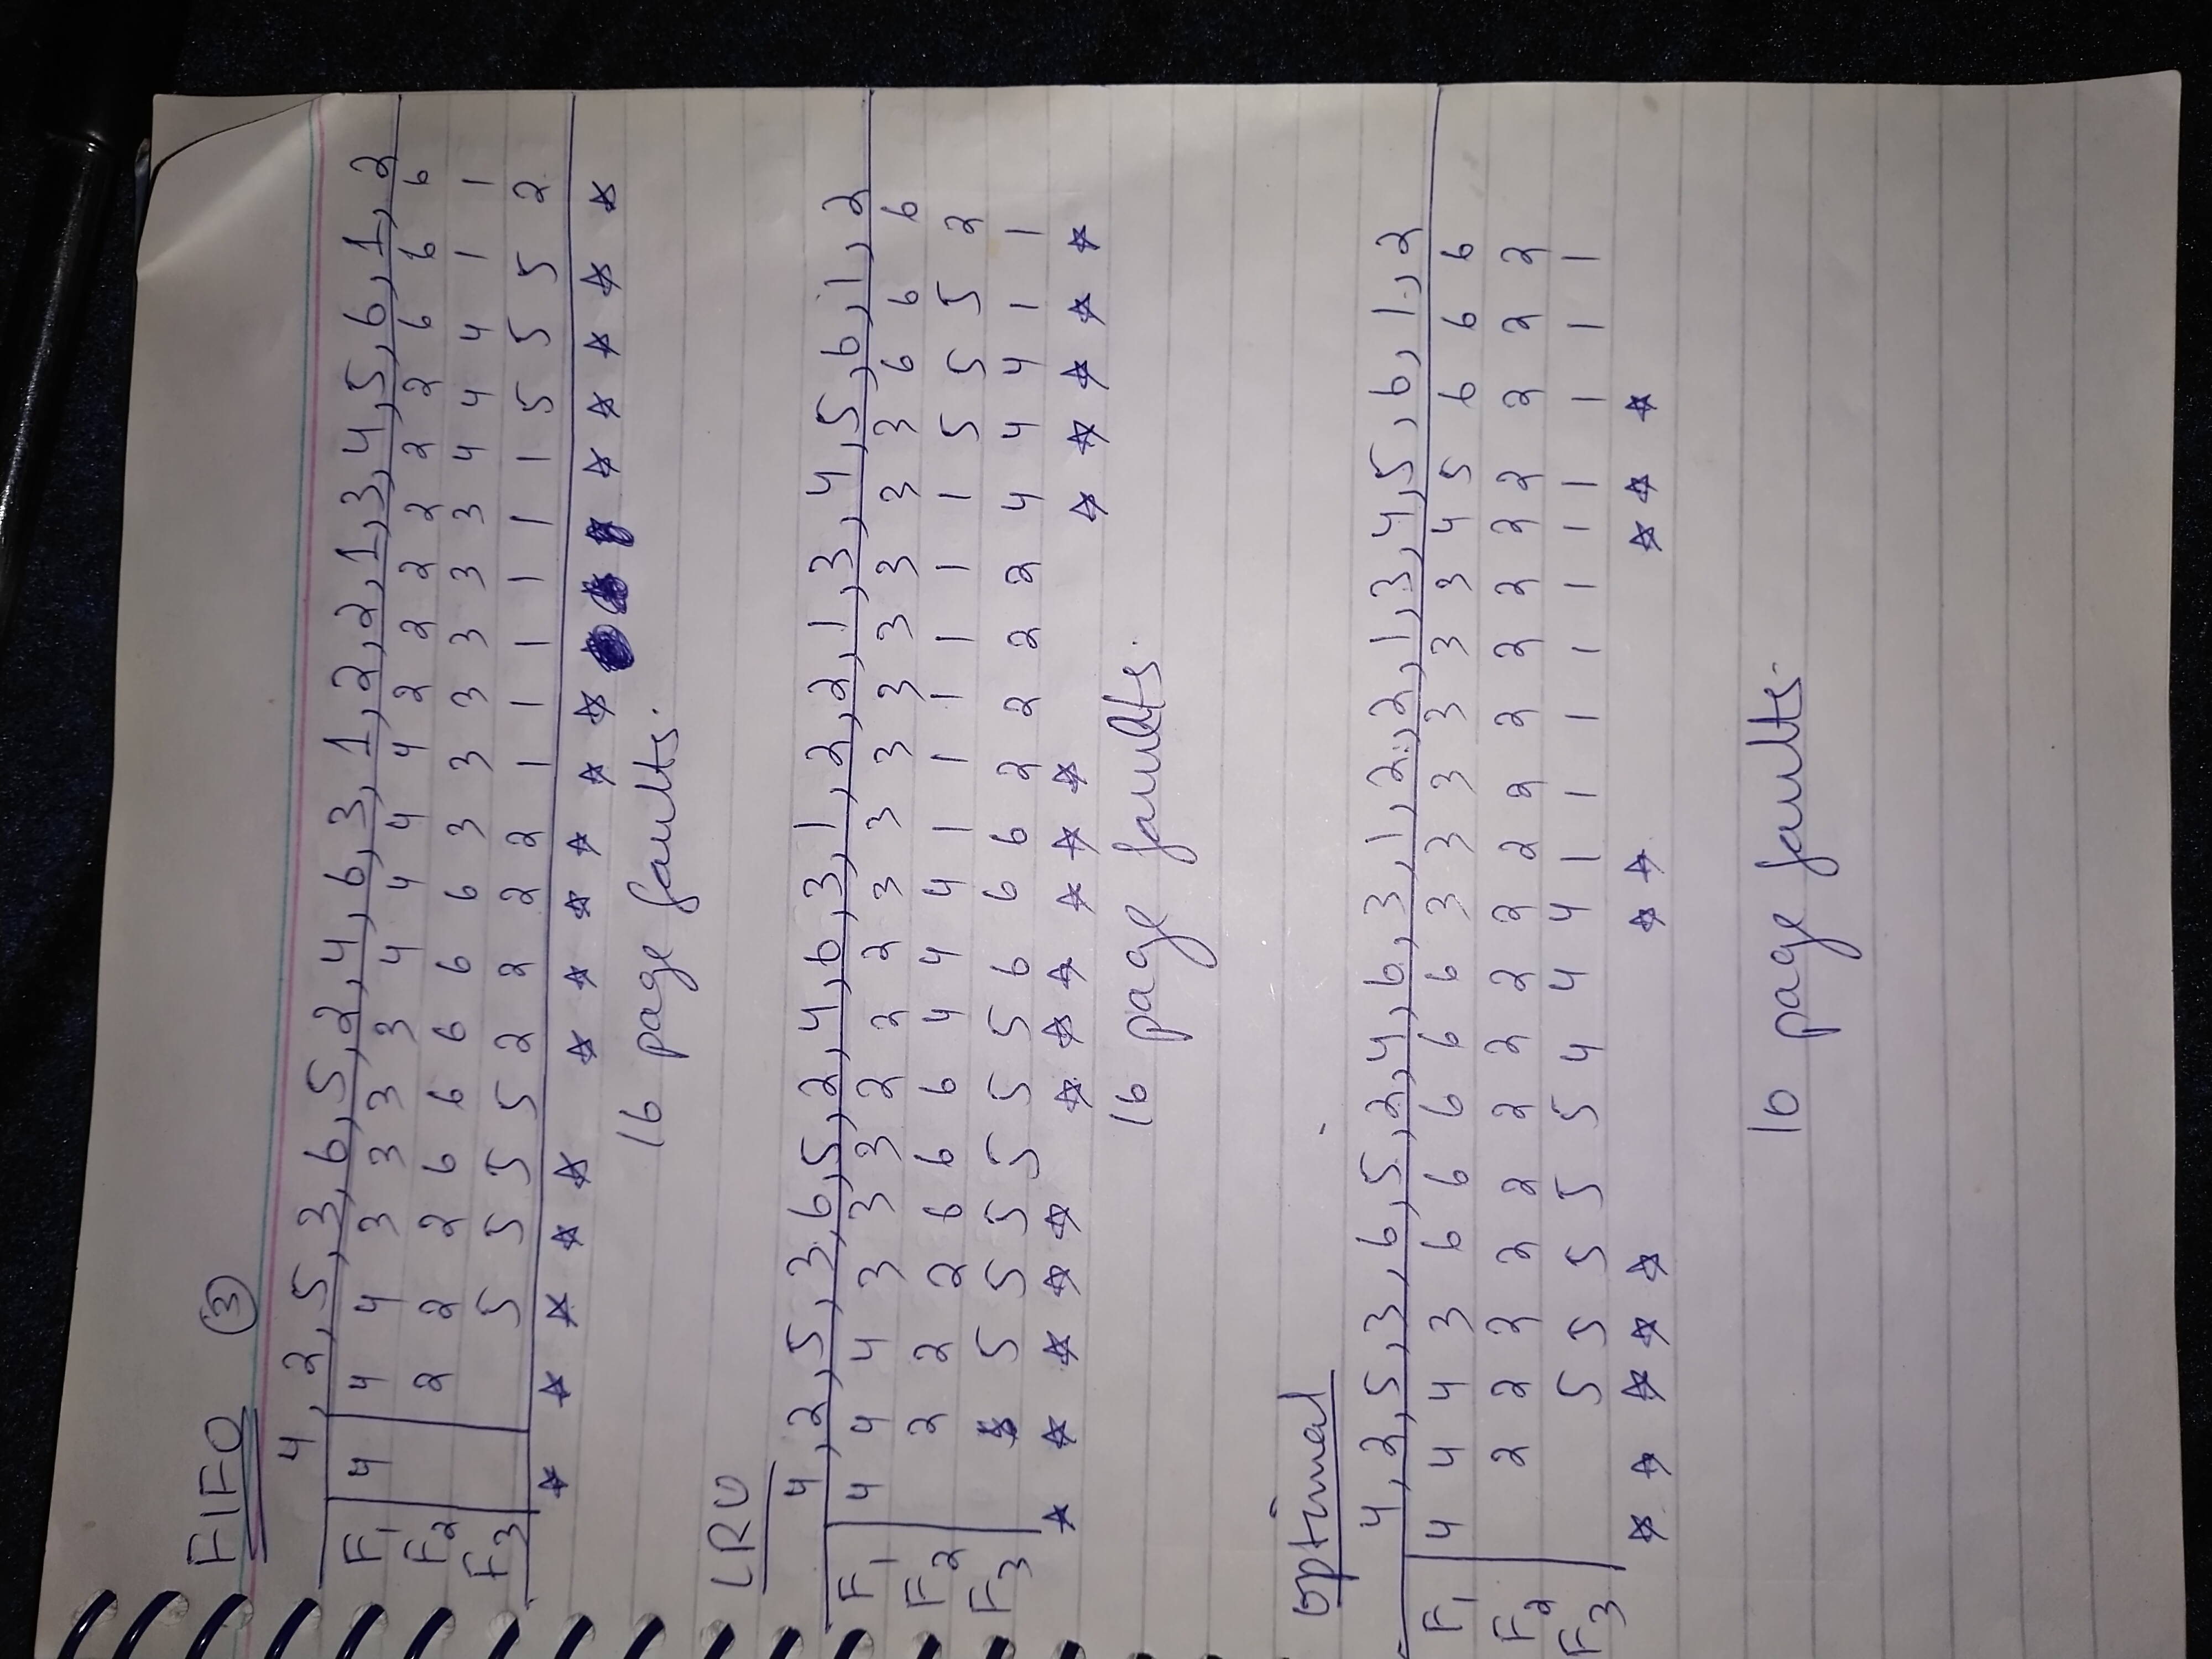 FIFO ③
4, 2, 5, 3, 6, 5, 2, 4, 6, 3, 1, 2, 2, 1, 3, 4, 5, 6, 1, 2
F1 4 4 4 3 3 3 3 4 4 4 4 2 2 2 2 2 2 6 6 6
F2 2 2 2 6 6 6 6 6 3 3 3 3 3 3 4 4 4 1 1
F3 5 5 5 5 2 2 2 2 1 1 1 1 1 1 5 5 5 2
☆ ☆ ☆ ☆ ☆ ☆ ☆ ☆ ☆ ☆ ☆ ☆ ☆ ☆ ☆ ☆
16 page faults.
LRU
4, 2, 5, 3, 6, 5, 2, 4, 6, 3, 1, 2, 2, 1, 3, 4, 5, 6, 1, 2
F1 4 4 4 3 3 3 2 2 2 3 3 3 3 3 3 3 3 6 6 6
F2 2 2 2 6 6 6 4 4 4 1 1 1 1 1 1 5 5 5 2
F3 5 5 5 5 5 5 6 6 6 2 2 2 2 4 4 4 1 1
☆ ☆ ☆ ☆ ☆ ☆ ☆ ☆ ☆ ☆ ☆ ☆ ☆ ☆ ☆ ☆
16 page faults.
optimal
4, 2, 5, 3, 6, 5, 2, 4, 6, 3, 1, 2, 2, 1, 3, 4, 5, 6, 1, 2
F1 4 4 4 3 6 6 6 6 6 3 3 3 3 3 3 4 5 6 6 6
F2 2 2 2 2 2 2 2 2 2 2 2 2 2 2 2 2 2 2 2
F3 5 5 5 5 5 4 4 4 1 1 1 1 1 1 1 1 1 1
☆ ☆ ☆ ☆ ☆ ☆ ☆ ☆ ☆ ☆
10 page faults.